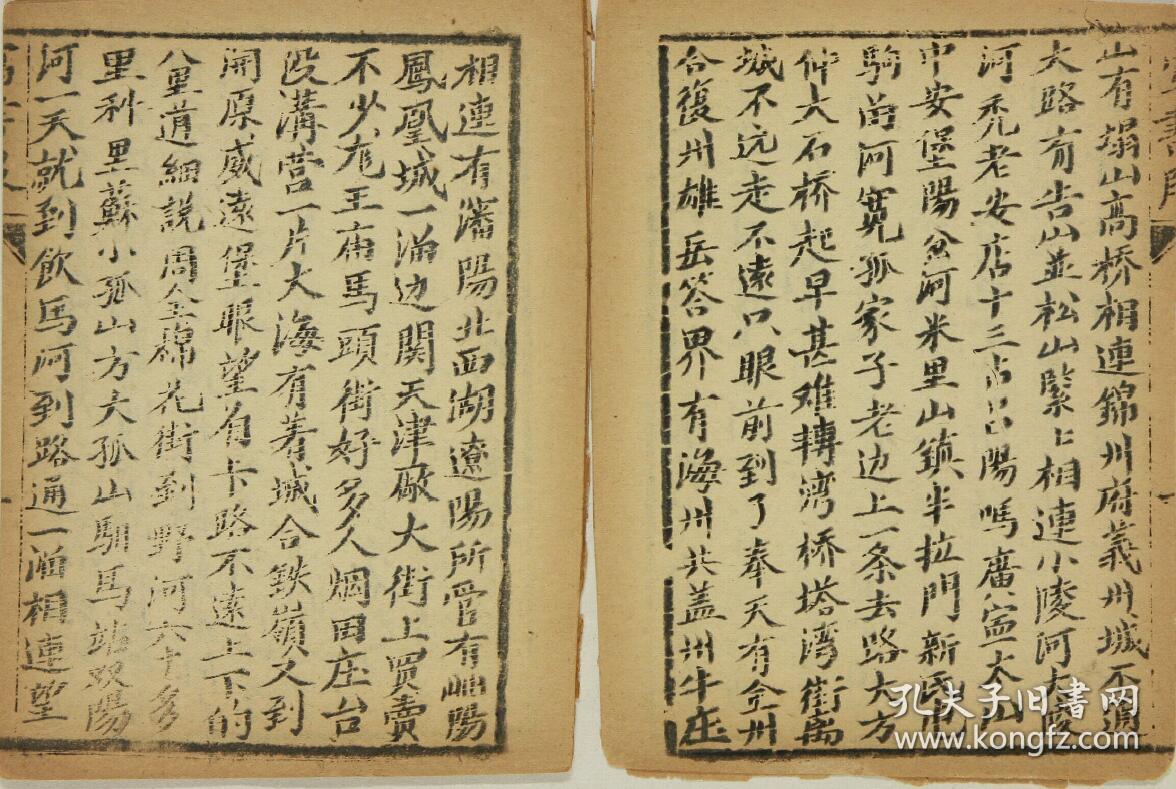 山有塌山高桥相連錦州府義州城不遠
大路有杏山並松山緊上相連小陵河大陵
河禿老安店十三占呂陽嗎廣宁大山
中安堡陽岔河米里山鎮半拉門新民屯
駒苗河寛孤家子老边上一条去路大方
仲大石桥起早甚难轉湾桥塔湾街离
城不远走不遠只眼前到了奉天有全州
合復州雄岳答界有海州共盖州牛庄
相連有瀋陽北西湖遼陽所管有岫陽
鳳凰城一涌边関天津廠大街上買賣
不少龙王庙馬頭街好多人烟田庄台
没溝营一片大海有着城合鉄嶺又到
開原威遠堡眼望有卡路不遠上下的
八里道細説周全棉花街到野河六十多
里科里蘇小孤山方大孤山馹馬站双陽
河一天就到飲馬河到路通一涌相連望
孔夫子旧書网
www.kongfz.com